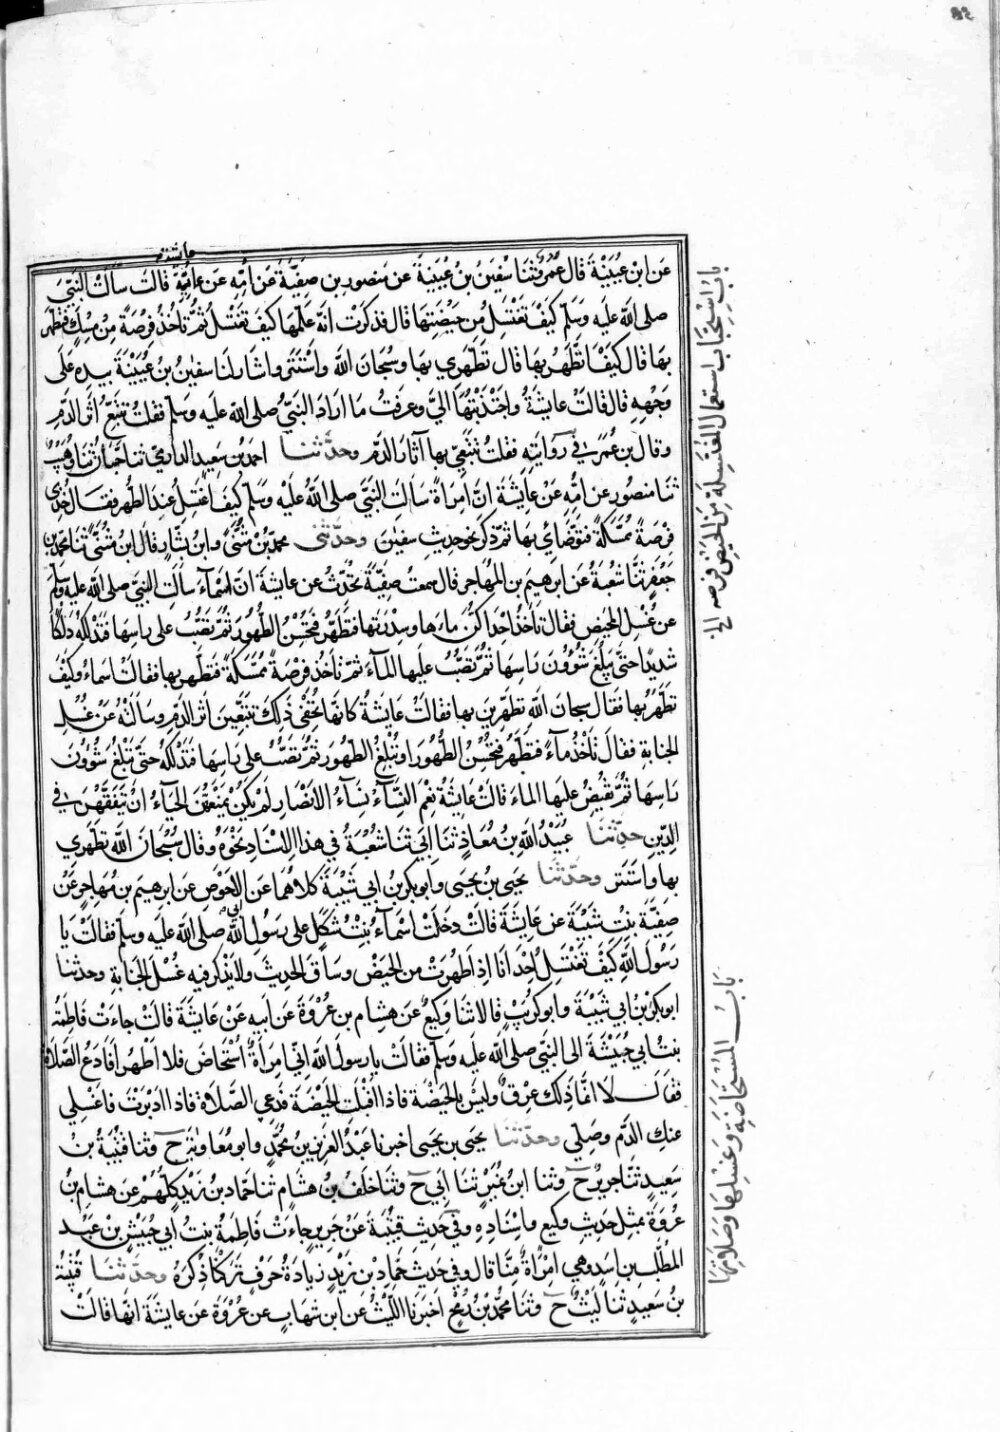 عايشة
عن ابن عيينة قال عمرو ثنا سفين بن عيينة عن منصور بن صفية عن امه عن عايشة قالت سألت النبي
صلى الله عليه وسلم كيف تغتسل من حيضتها قال فذكرت انه علمها كيف تغتسل ثم تأخذ فرصة من مسك فتطهر
بها قال كيف اتطهر بها قال تطهري بها وسبحان الله واستتر واشار لنا سفين بن عيينة بيده على
وجهه قال قالت عايشة واجتذبتها الي وعرفت ما اراد النبي صلى الله عليه وسلم فقلت تتبعي اثر الدم
وقال بن عمر في روايته فقلت تتبعي بها آثار الدم وحدثنا احمد بن سعيد الدارمي ثنا حبان ثنا وهيب
ثنا منصور عن امه عن عايشة ان امرأة سألت النبي صلى الله عليه وسلم كيف اغتسل عند الطهر فقال خذي
فرصة ممسكة فتوضأي بها ثم ذكر نحو حديث سفين وحدثني محمد بن مثنى وابن بشار قال ابن مثنى ثنا محمد بن
جعفر ثنا شعبة عن ابرهيم بن المهاجر قال سمعت صفية تحدث عن عايشة ان اسماء سألت النبي صلى الله عليه وسلم
عن غسل المحيض فقال تأخذ احداكن ماءها وسدرتها فتطهر فتحسن الطهور ثم تصب على راسها فتدلكه دلكا
شديدا حتى يبلغ شؤون راسها ثم تصب عليها الماء ثم تأخذ فرصة ممسكة فتطهر بها فقالت اسماء وكيف
تطهر بها فقال سبحان الله تطهرين بها فقالت عايشة كانها تخفي ذلك تتبعين اثر الدم وسألته عن غسل
الجنابة فقال تأخذ ماء فتطهر فتحسن الطهور او تبلغ الطهور ثم تصب على راسها فتدلكه حتى تبلغ شؤون
راسها ثم تفيض عليها الماء قالت عايشة نعم النساء نساء الانصار لم يكن يمنعهن الحياء ان يتفقهن في
الدين حدثنا عبيد الله بن معاذ ثنا ابي ثنا شعبة في هذا الاسناد نحوه وقال سبحان الله تطهري
بها واستتر وحدثنا يحيى بن يحيى وابو بكر بن ابي شيبة كلاهما عن ابي الاحوص عن ابرهيم بن مهاجر عن
صفية بنت شيبة عن عايشة قالت دخلت اسماء بنت شكل على رسول الله صلى الله عليه وسلم فقالت يا
رسول الله كيف تغتسل احدانا اذا طهرت من الحيض وساق الحديث ولا يذكر فيه غسل الجنابة وحدثنا
ابو بكر بن ابي شيبة وابو كريب قالا ثنا وكيع عن هشام بن عروة عن ابيه عن عايشة قالت جاءت فاطمة
بنت ابي حبيشة الى النبي صلى الله عليه وسلم فقالت يا رسول الله اني امرأة استحاض فلا اطهر افادع الصلاة
فقال لا انما ذلك عرق وليس بالحيضة فاذا اقبلت الحيضة فدعي الصلاة فاذا ادبرت فاغسلي
عنك الدم وصلي وحدثنا يحيى بن يحيى اخبرنا عبد العزيز بن محمد وابو معاوية ح وثنا قتيبة بن
سعيد ثنا جرير ح وثنا ابن نمير ثنا ابي ح وثنا خلف بن هشام ثنا حماد بن زيد كلهم عن هشام بن
عروة بمثل حديث وكيع واسناده وفي حديث قتيبة عن جرير جاءت فاطمة بنت ابي حبيش بن عبد
المطلب بن اسد وهي امرأة منا قال وفي حديث حماد بن زيد زيادة حرف تركنا ذكره وحدثنا قتيبة
بن سعيد ثنا ليث ح وثنا محمد بن رمح اخبرنا الليث عن ابن شهاب عن عروة عن عايشة انها قالت
باب استحباب استعمال المغتسلة من الحيض فرصة الخ
باب المستحاضة وغسلها وصلاتها